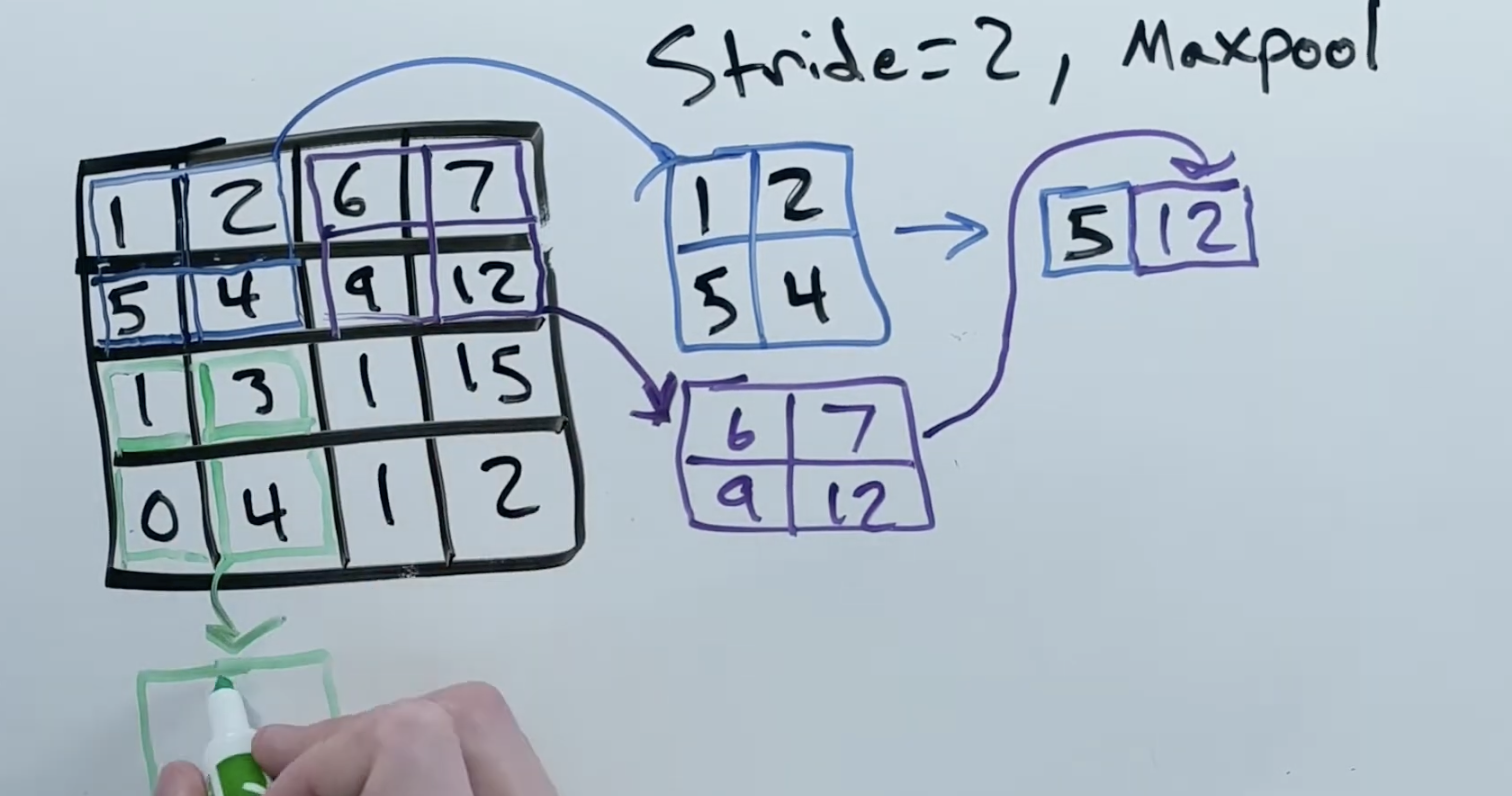 Stride=2, Maxpool
1 2 6 7
5 4 9 12
1 3 1 15
0 4 1 2
1 2
5 4
5 12
6 7
9 12